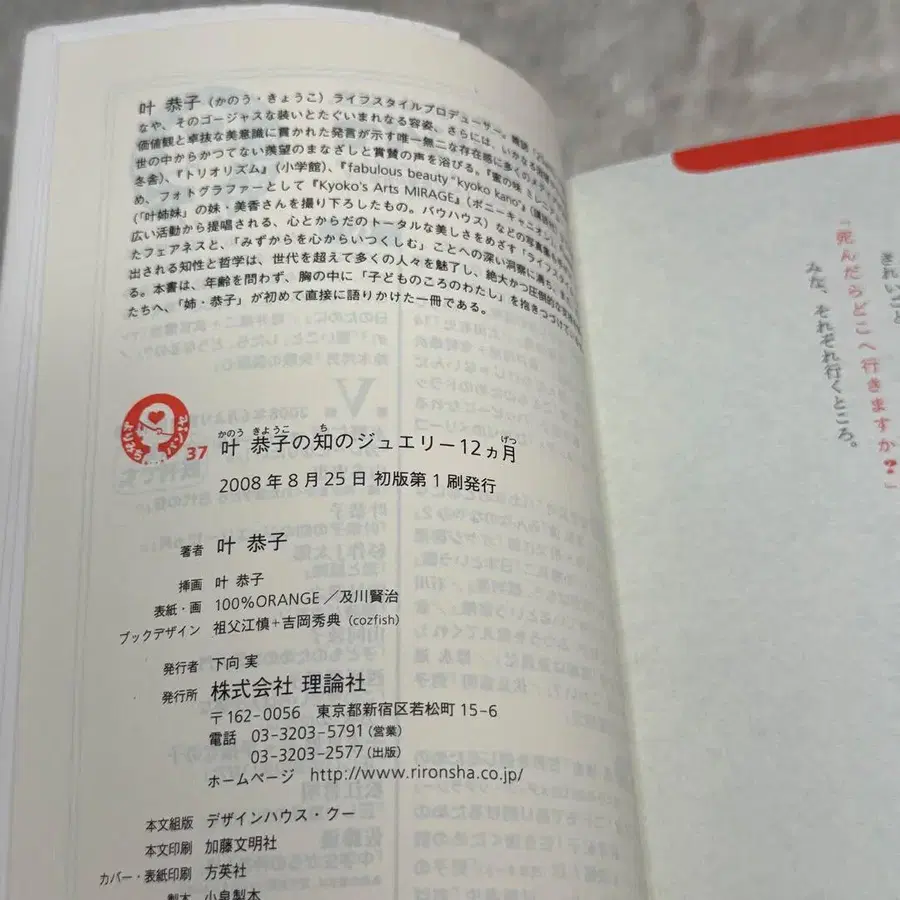 叶 恭子（かのう・きょうこ）ライフスタイルプロデューサー。雑誌
なや、そのゴージャスな装いとたぐいまれなる容姿、さらには、いかなる
価値観と卓抜な美意識に貫かれた発言が示す唯一無二な存在感に多くの
世の中からかつてない羨望のまなざしと賞賛の声を浴びる。『蜜の味
冬舎）、『トリオリズム』（小学館）、『fabulous beauty "kyoko kano"』（講談社）
め、フォトグラファーとして『Kyoko's Arts MIRAGE』（ポニーキャニオン）、
（「叶姉妹」の妹・美香さんを撮り下ろしたもの。バウハウス）などの写真集
広い活動から提唱される、心とからだのトータルな美しさをめざす「ライフスタイル
たフェアネスと、「みずからを心からいつくしむ」ことへの深い洞察に満ち、
出される知性と哲学は、世代を超えて多くの人々を魅了し、絶大かつ圧倒的な支持
る。本書は、年齢を問わず、胸の中に「子どものころのわたし」を抱きつづけて
たちへ、「姉・恭子」が初めて直接に語りかけた一冊である。
よりみちパン!セ
37
かのう きょうこ ち げつ
叶 恭子の知のジュエリー12ヵ月
2008年8月25日 初版第1刷発行
著者 叶 恭子
挿画 叶 恭子
表紙・画 100%ORANGE／及川賢治
ブックデザイン 祖父江慎＋吉岡秀典（cozfish）
発行者 下向 実
発行所 株式会社 理論社
〒162-0056 東京都新宿区若松町15-6
電話 03-3203-5791（営業）
03-3203-2577（出版）
ホームページ http://www.rironsha.co.jp/
本文組版 デザインハウス・クー
本文印刷 加藤文明社
カバー・表紙印刷 方英社
製本 小泉製本
きれいごと
「死んだらどこへ行きますか?」
みな、それぞれ行くところ。